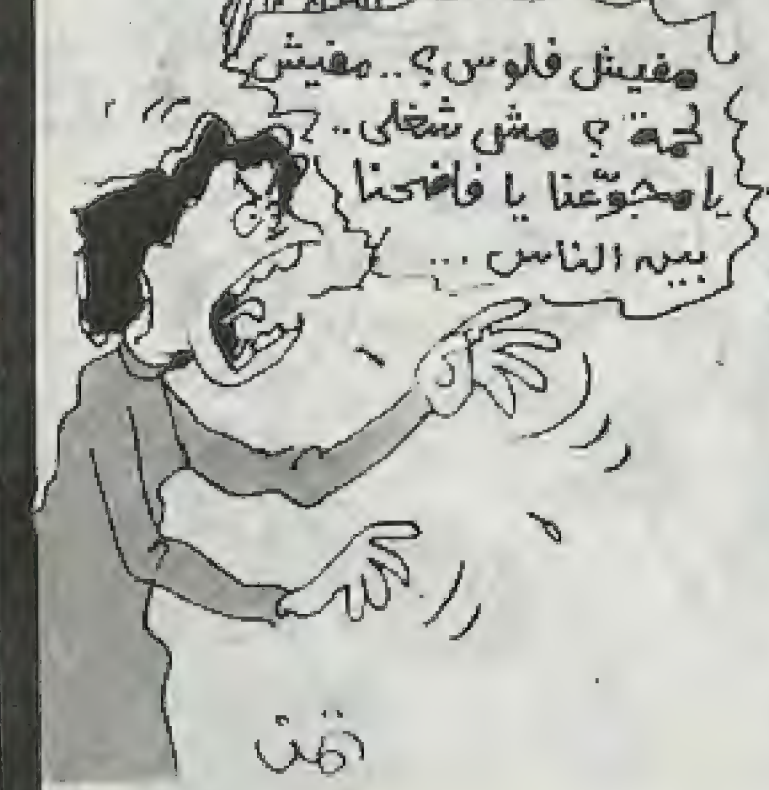 مفيش فلوس؟.. مفيش
لحمة؟ مش شغلى..
يا مجوّعنا يا فاضحنا
بين الناس ...